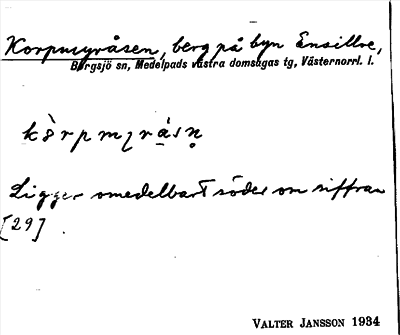 Korpmyråsen, berg på byn Ensillre,
Bergsjö sn, Medelpads västra domsagas tg, Västernorrl. l.
Ligger omedelbart söder om siffran
[29].
VALTER JANSSON 1934